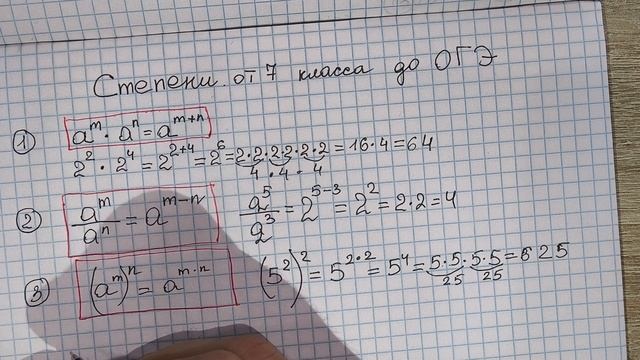 Степени от 7 класса до ОГЭ
① aᵐ · aⁿ = aᵐ⁺ⁿ
2² · 2⁴ = 2²⁺⁴ = 2⁶ = 2·2·2·2·2·2 = 16·4 = 64
4 · 4 · 4
② aᵐ/aⁿ = aᵐ⁻ⁿ 2⁵/2³ = 2⁵⁻³ = 2² = 2·2 = 4
③ (aᵐ)ⁿ = aᵐ·ⁿ (5²)² = 5²·² = 5⁴ = 5·5·5·5 = 625
25 25